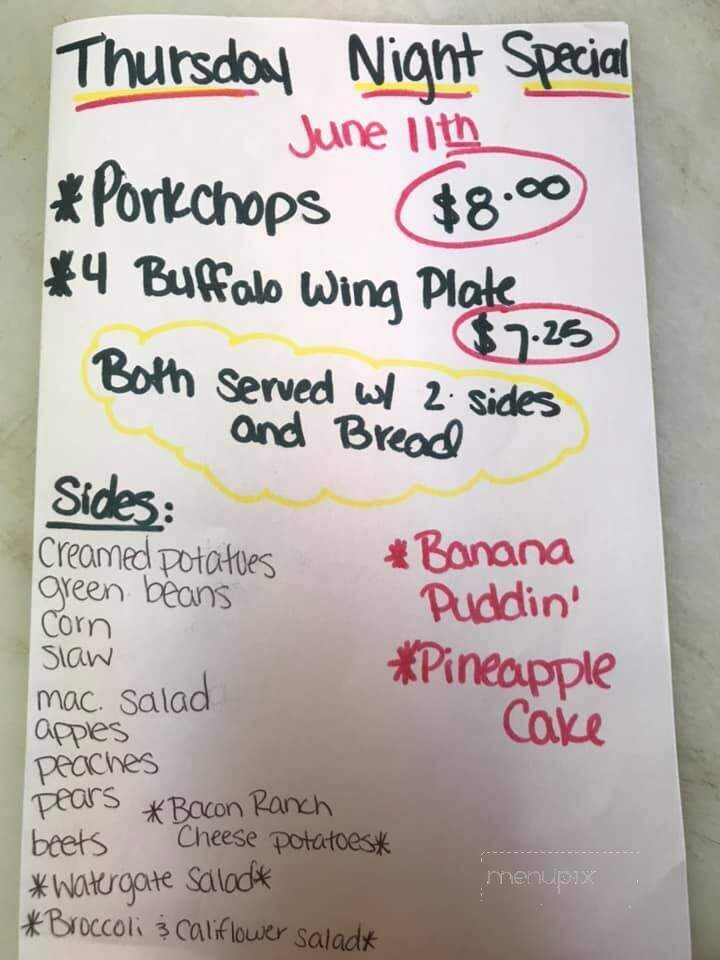 Thursday Night Special
June 11th
*Porkchops $8.00
*4 Buffalo Wing Plate
$7.25
Both served w/ 2 sides
and Bread
Sides:
Creamed potatoes
green beans
corn
slaw
mac. salad
apples
peaches
pears
beets
*Bacon Ranch
Cheese potatoes*
*Watergate Salad*
*Broccoli & Califlower salad*
*Banana
Puddin'
*Pineapple
Cake
menupix